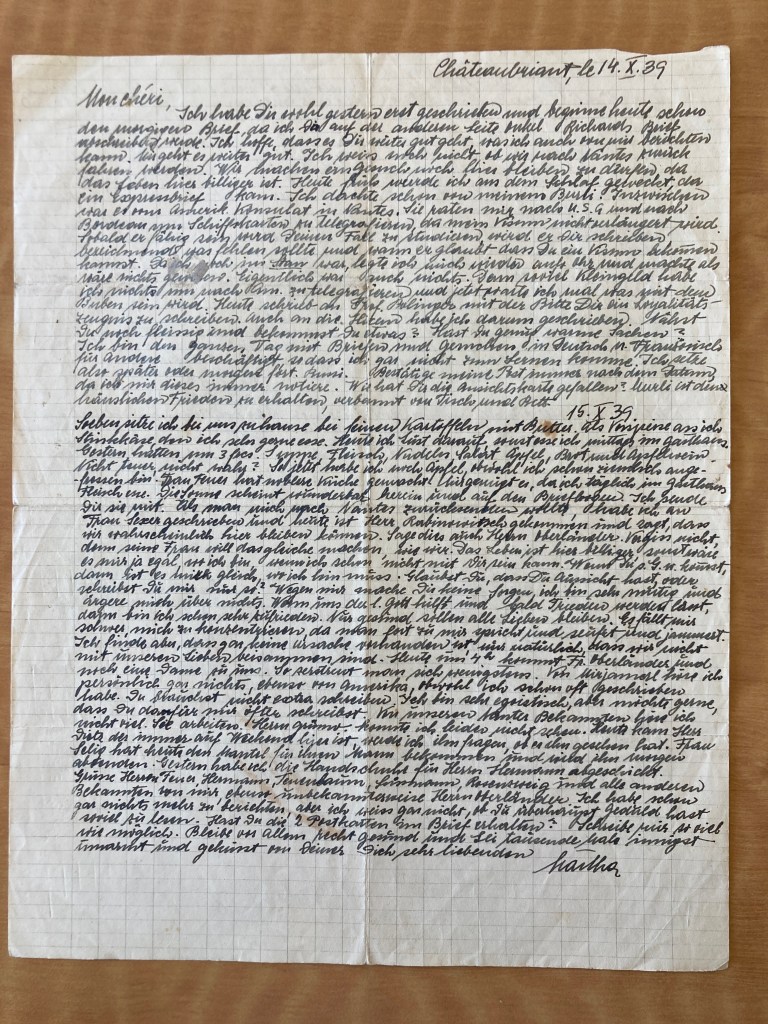 Châteaubriant, le 14. X. 39
Mon chéri,
Ich habe Dir wohl gestern erst geschrieben und beginne heute schon
den morgigen Brief, da ich Dir auf der anderen Seite onkel Richards Brief
abschreiben werde. Ich hoffe, dass es Dir weiter gut geht, was ich auch von mir berichten
kann. Mir geht es weiter gut. Ich weiss noch nicht, ob wir nach Nantes zurück
fahren werden. Wir machen ein Gesuch, hier bleiben zu dürfen, da
das Leben hier billiger ist. Heute früh werde ich aus dem Schlaf geweckt, da
ein Expressbrief kam. Ich dachte schon von meinem Burli! Inzwischen
war es vom Amerik. Konsulat in Nantes. Sie raten mir nach U.S.A. und nach
Bordeaux um Schiffskarten zu telegrafieren, da mein Visum nicht verlängert wird.
Sobald er fähig sein wird Deinen Fall zu studieren, wird er Dir schreiben,
bezeichnend was fehlen sollte und wann er glaubt dass Du ein Visum bekommen
kannst. Da ich noch im war, legte ich mich wieder auf Ohr und machte als
wäre nichts. Eigentlich war es auch nichts. Denn soviel Kleingeld habe
ich nicht, um nach Am. zu telegrafieren und jetzt warte ich mal was mit dem
Buben sein wird. Heute schrieb ich Frl. mit der Bitte Dir ein Loyalitäts-
zeugnis zu schreiben. Auch an die habe ich darum geschrieben. Nähst
Du noch fleissig und bekommst Du was? Hast Du genug warme Sachen?
Ich bin den ganzen Tag mit Briefen und Gesuchen in Deutsch u. Französisch
für andere beschäftigt, sodass ich gar nicht zum Lernen komme. Ich setze
also später oder morgen fort. Bestätige meine Post immer nach dem Datum,
da ich mir dieses immer notiere. Wie hat Dir die Ansichtskarte gefallen? ist den
häuslichen Frieden zu erhalten, verbannt von Tisch und Bett.
15. X. 39
Soeben sitze ich bei uns zuhause bei feinen Kartoffeln mit Butter. Als Vorspeise ass ich
Stinkkäse, den ich sehr gerne esse. Heute ich Lust darauf, sonst esse ich mittags im Gasthaus.
Gestern hatten um 3 frcs. Suppe, Fleisch, Nudeln, Salat, Apfel, Brot und Apfelwein.
Nicht teuer, nicht wahr? So jetzt habe ich noch Apfel, obwohl ich schon ziemlich ange-
fressen bin. Frau Feuer hat koschere Küche gemacht. Mir genügt es, da ich täglich im Gasthaus
Fleisch esse. Die Sonne scheint wunderbar herein und auf den Briefbogen. Ich sende
Dir sie mit. Als man mich nach Nantes zurücksenden wollte, habe ich an
Frau geschrieben und heute ist Herr Rabinowitsch gekommen und sagt, dass
wir wahrscheinlich hier bleiben können. Sage dies auch Herrn Oberländer. Vergiss nicht
denn seine Frau will dasgleiche machen, wie wir. Das Leben ist hier billiger, sonst wäre
es mir ja egal, wo ich bin, wenn ich schon nicht mit Dir sein kann. Wenn Du p. G. u. kommst,
dann ist es mir gleich, wo ich hin muss. Glaubst Du, dass Du Aussicht hast, oder
schreibst Du mir nur so? Wegen mir mache Dir keine Sorgen, ich bin sehr mutig und
ärgere mich über nichts. Wenn uns der l. Gott hilft und bald Frieden werden lässt,
dann bin ich schon sehr zufrieden. Nur gesund sollen alle Lieben bleiben. Es fällt mir
schwer, mich zu konzentrieren, da man fort zu mir spricht und seufzt und jammert.
Ich finde aber, dass gar keine Ursache vorhanden ist nur natürlich, dass wir nicht
mit unseren Lieben beisammen sind. Heute um 4h kommt Fr. Oberländer und
noch eine Dame zu uns. So zerstreut man sich wenigstens. Von höre ich
persönlich gar nichts, ebenso von Amerika, obwohl ich schon oft geschrieben
habe. Du brauchst nicht extra schreiben. Ich bin sehr egoistisch, aber möchte gerne,
dass Du dafür mir öfter schreibst. Von unseren Nanter Bekannten höre ich
nicht viel. Sie arbeiten. Herrn konnte ich leider nicht sehen. Heute kam Herr
Dietz der immer auf Weekend hier ist, werde ich ihn fragen, ob er ihn gesehen hat. Frau
Selig hat heute den Mantel für ihren Mann bekommen und wird ihn morgen
absenden. Gestern habe ich die Handschuhe für Herrn Hermann abgeschickt.
Grüsse Herrn Feuer, Hermann, Rosenzweig und alle anderen
Bekannten von mir ebenso unbekannterweise Herrn Oberländer. Ich habe schon
gar nichts mehr zu berichten, aber ich weiss gar nicht, ob Du überhaupt Geduld hast
soviel zu lesen. Hast Du die 2 Postkarten im Brief erhalten? Schreibe mir so viel
wie möglich. Bleibe vor allem recht gesund und sei tausende Male innigst
umarmt und geküsst von Deiner Dich sehr liebenden
Martha